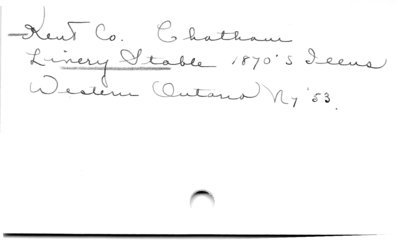 Kent Co. Chatham
Livery Stable 1870's Illus
Western Ontario N7 '53.